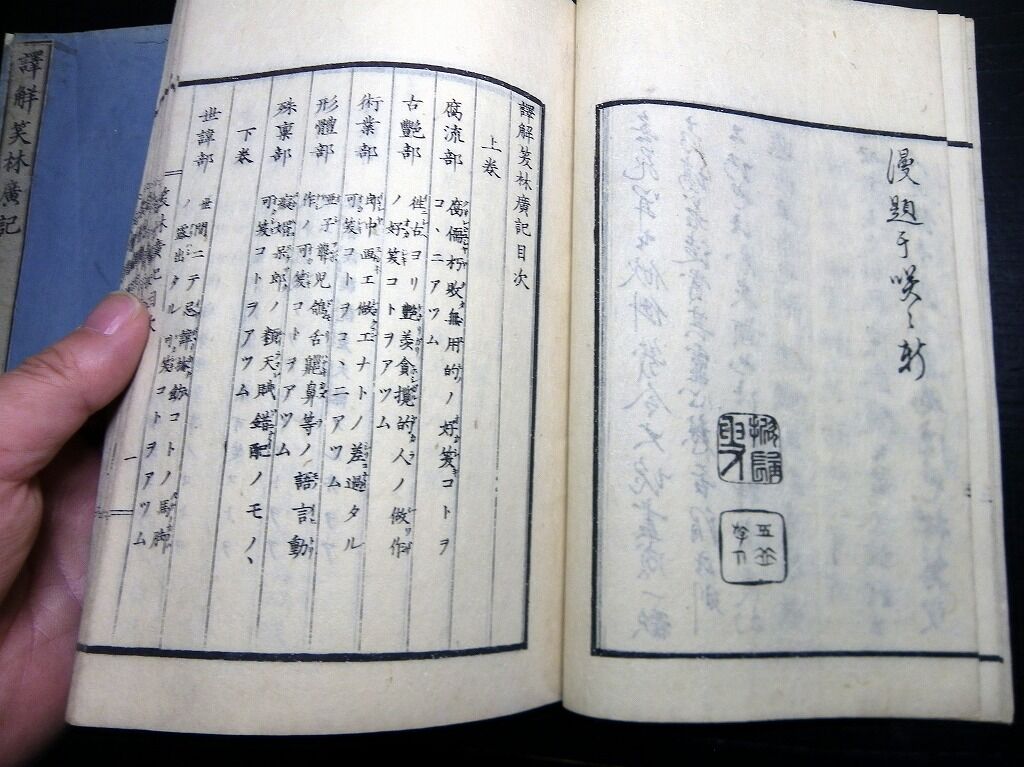 漫題于咲々軒
譯解笑林廣記目次
上卷
腐流部 腐儒朽敗無用的ノ好笑コトヲ
コヽニアツム
古艷部 往古ヨリ艷羨貪攬的人ノ做作
ノ好笑コトヲアツム
術業部 郎中画工做工ナトノ差過タル
可笑ヲトヲコヽニアツム
形體部 聾兒鴿舌齆鼻等ノ語言動
作ノ可笑コトヲアツム
殊稟部 癡婿呆郎ノ類天賦錯配ノモノヽ
可笑コトヲアツム
下卷
世諱部 世間ニテ忌諱コトノ馬脚
ノ盛出タル可笑コトヲアツム
笑林廣記目次
一
譯解笑林廣記